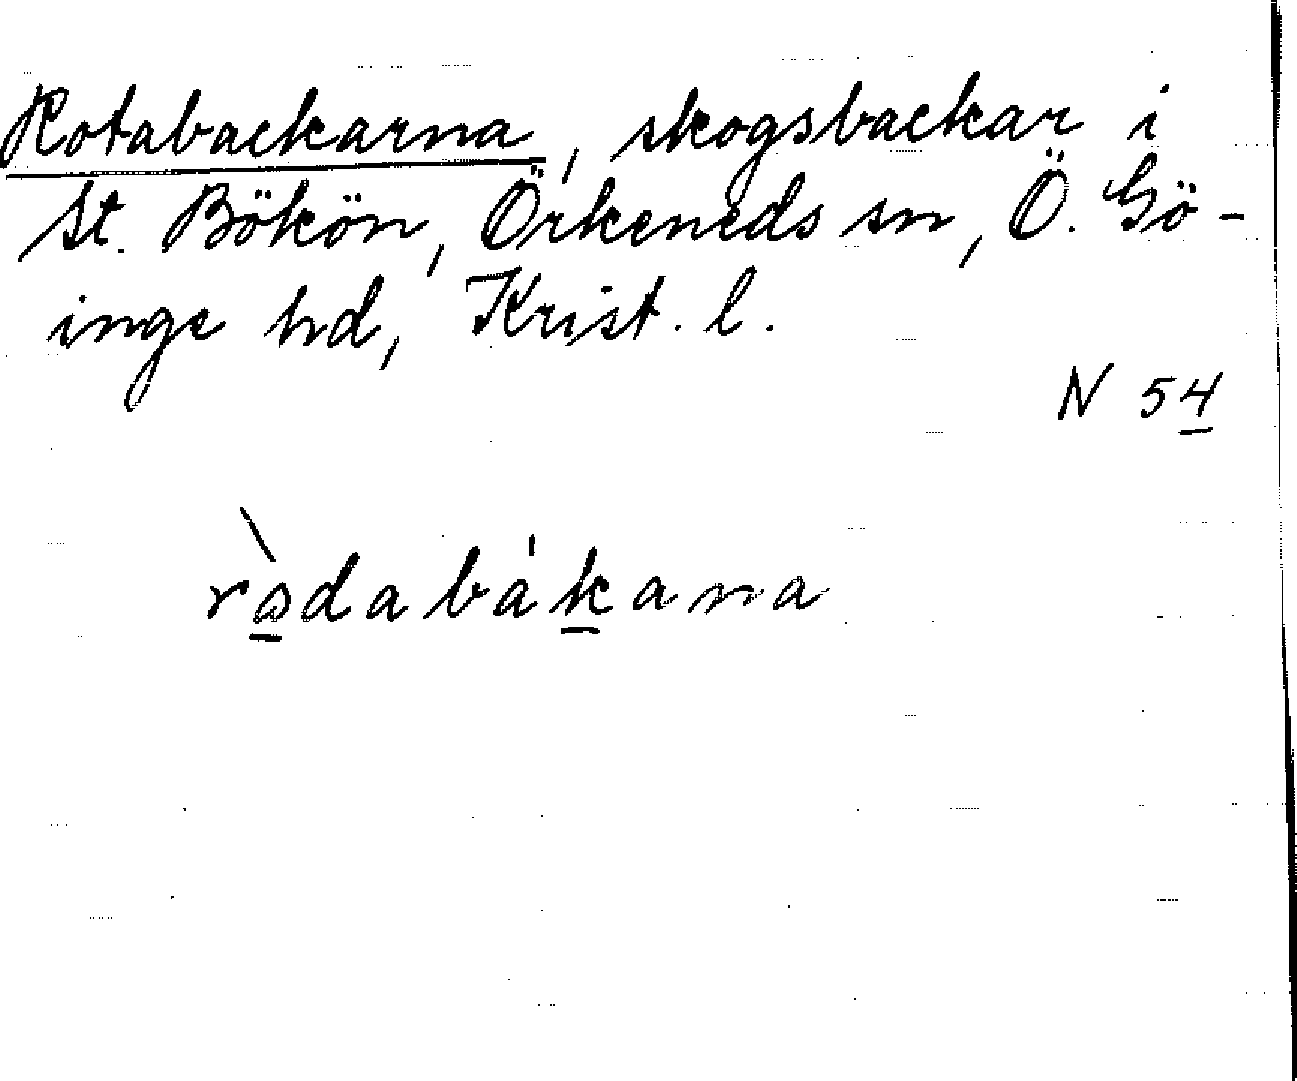 Rotabackarna, skogsbackar i
St. Bökön, Örkeneds sn, Ö. Gö-
inge hd, Krist. l.
N 54
ròdabákana